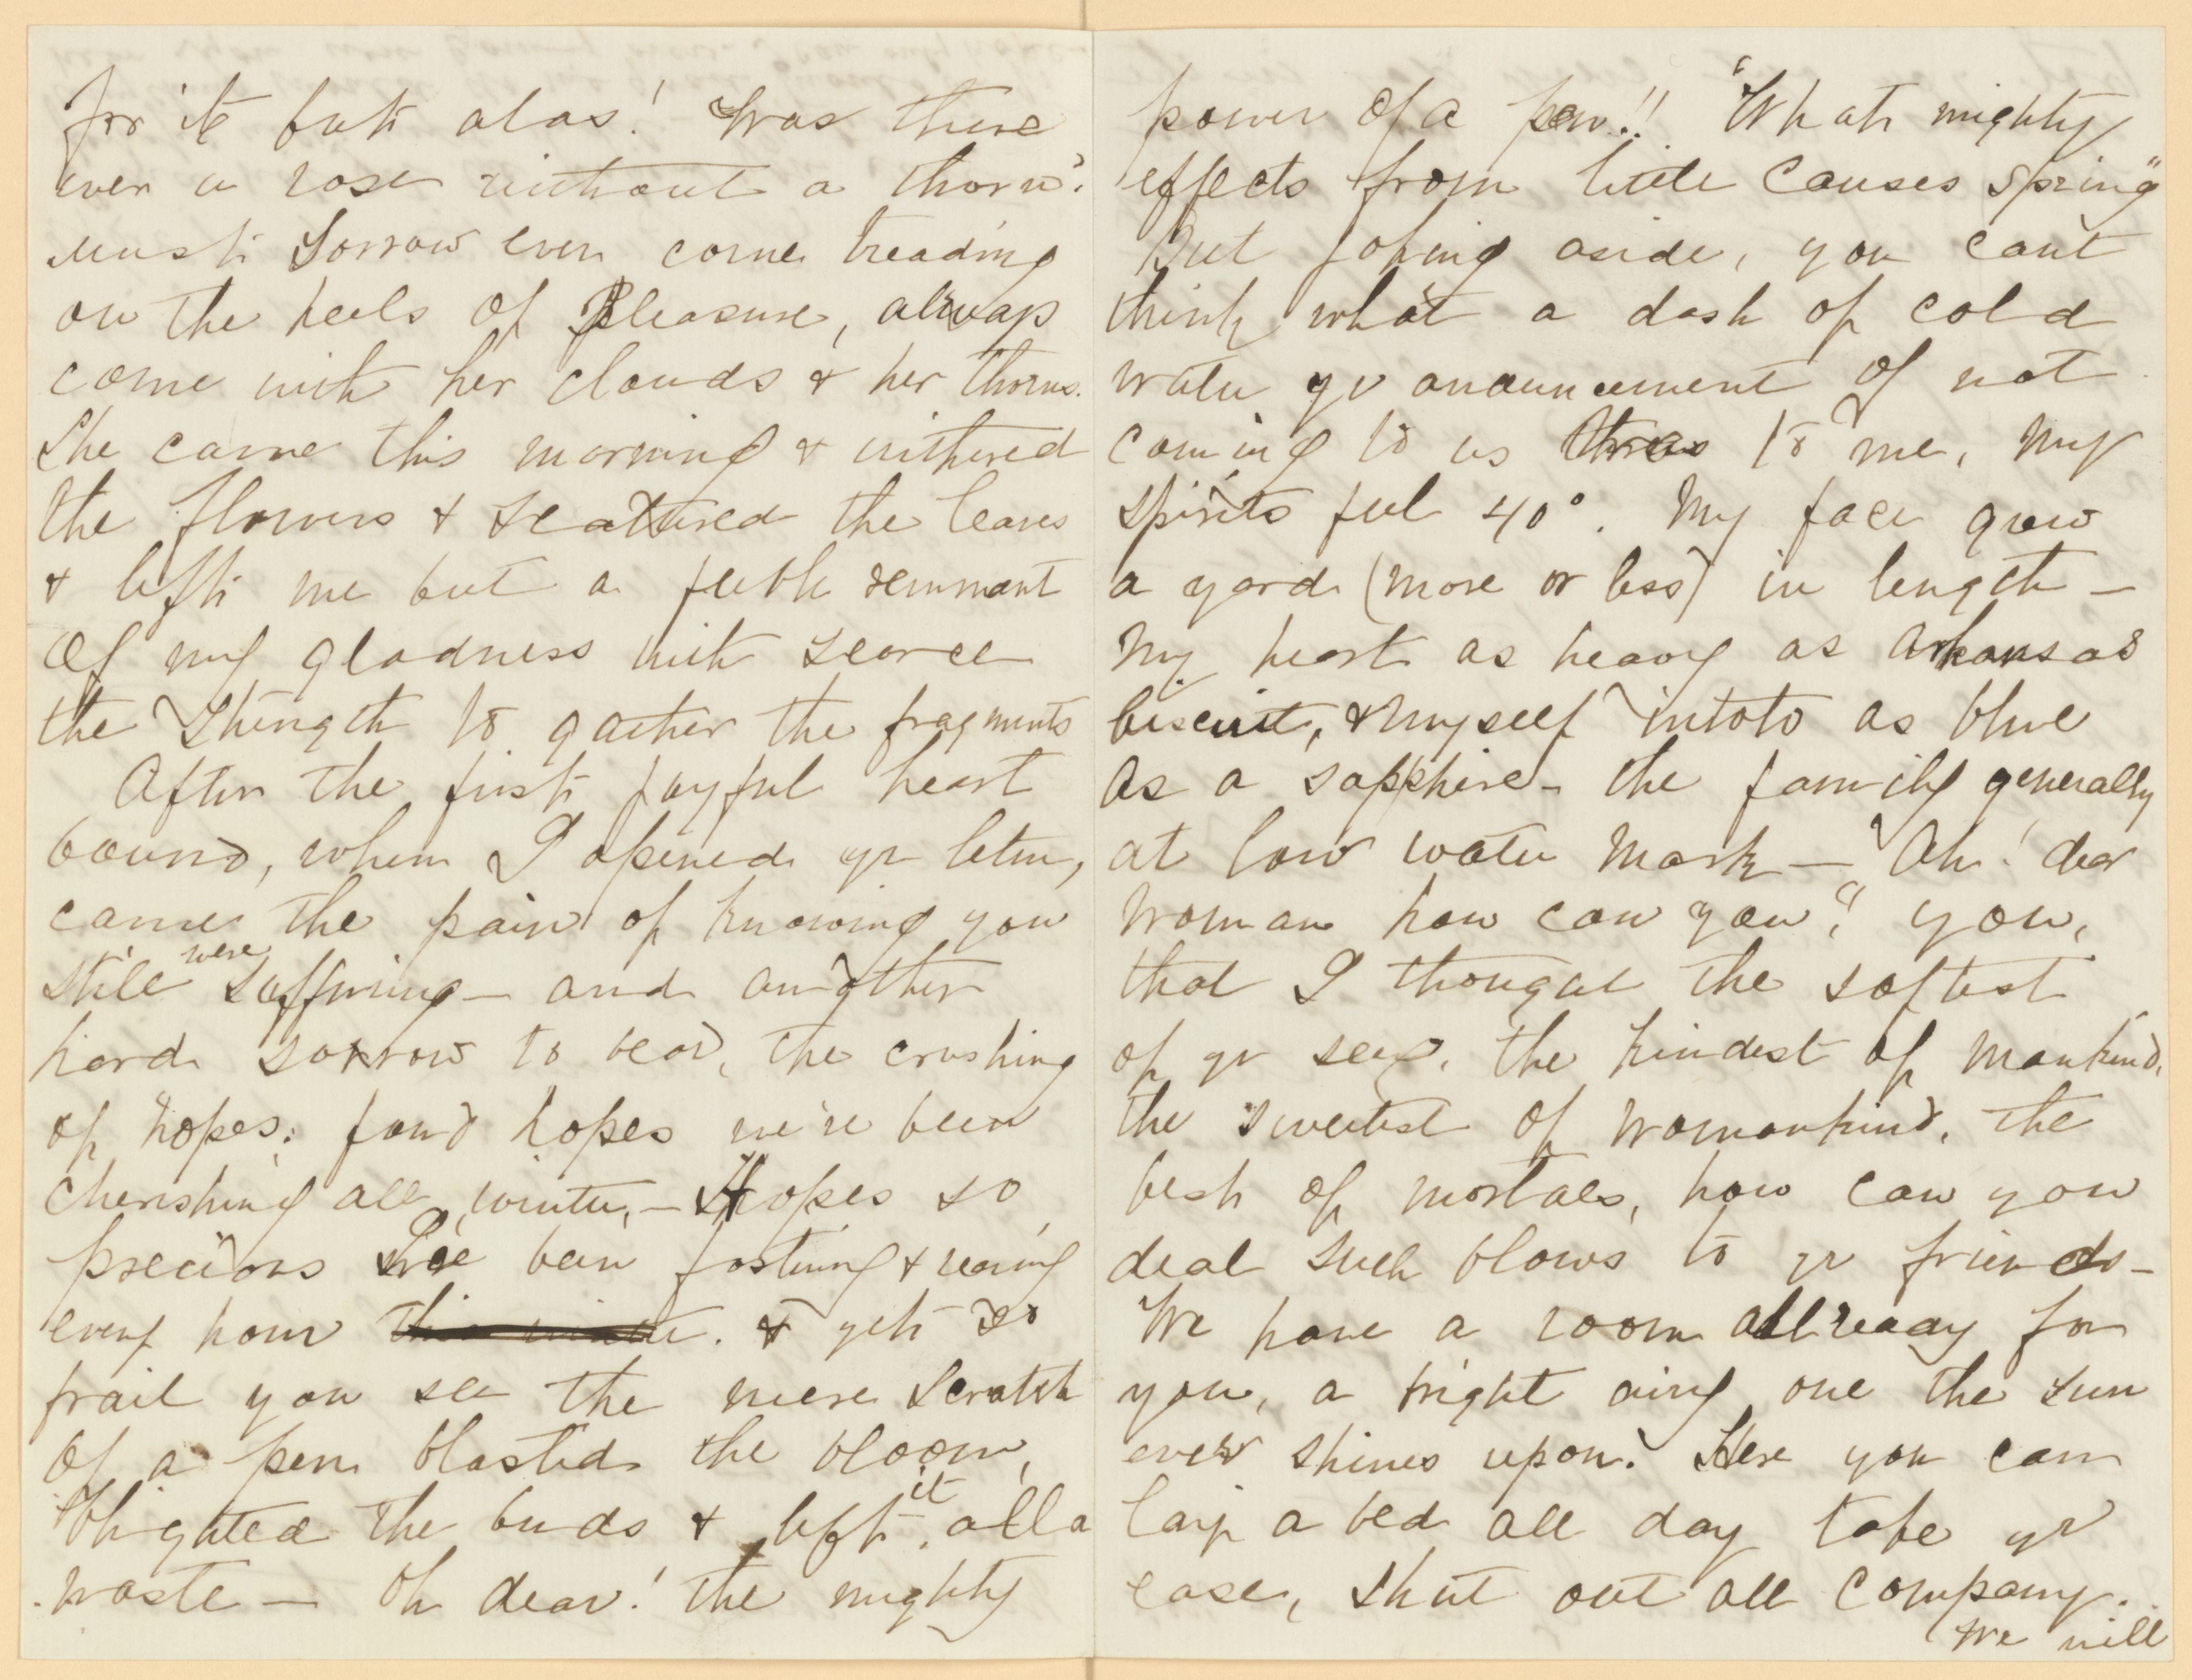 for it but alas! Was there
ever a rose without a thorn?
must Sorrow ever come treading
on the heels of Pleasure, always
come with her clouds & her thorns.
She came this morning & withered
the flowers & scattered the leaves
& left me but a feeble remnant
of my gladness with scarce
the strength to gather the fragments
After the first joyful heart
bound, when I opened yr letter,
came the pain of knowing you
still were suffering — and another
hard sorrow to bear, the crushing
of hopes; fond hopes we've been
cherishing all winter, — Hopes so
precious I've been fostering & rearing
every hour this winter. & yet so
frail you see the mere scratch
of a pen blasted the bloom,
blighted the buds & left it all a
waste — Oh dear! the mighty
power of a pen!! "What mighty
effects from little causes spring"
But joking aside, you can't
think what a dash of cold
water yr anouncement of not
coming to us was to me, my
spirits fell 40°. My face grew
a yard (more or less) in length —
My heart as heavy as Arkansas
biscuit, & myself intoto as blue
as a sapphire — the family generally
at low water mark — "Ah! dear
woman how can you"? you,
that I thought the softest
of yr sex, the kindest of mankind,
the sweetest of womankind, the
best of mortals, how can you
deal such blows to yr friends —
We have a room all ready for
you, a bright airy one the sun
ever shines upon. Here you can
lay a bed all day take yr
ease, shut out all company.
We will